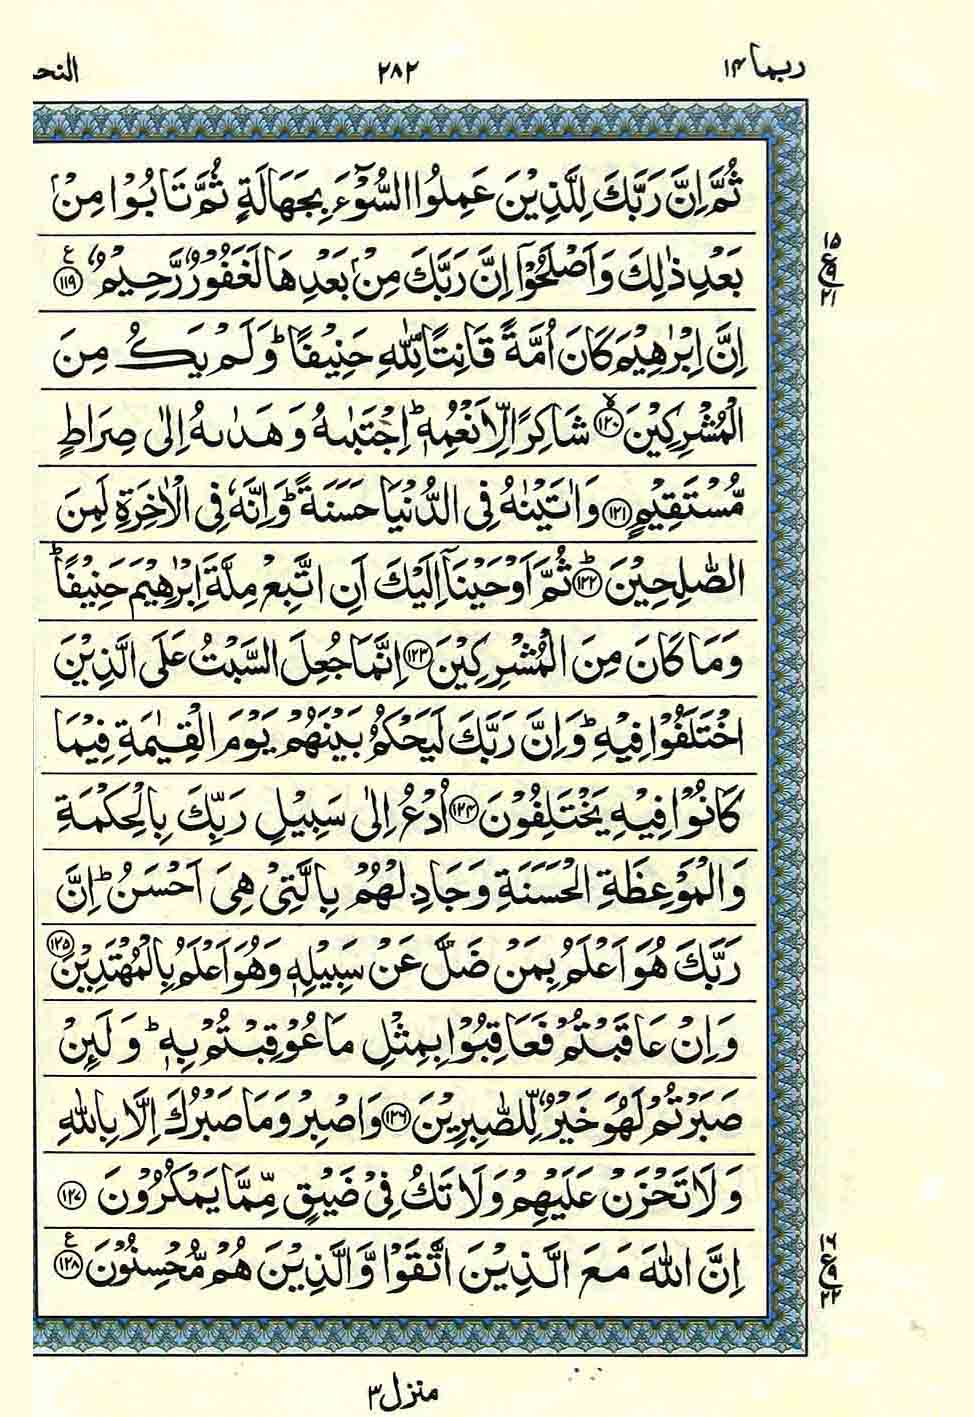 ربما ١۴ ٢٨٢ النحـ
ثُمَّ اِنَّ رَبَّكَ لِلَّذِيْنَ عَمِلُوا السُّوْٓءَ بِجَهَالَةٍ ثُمَّ تَابُوْا مِنْۢ
بَعْدِ ذٰلِكَ وَاَصْلَحُوْٓا اِنَّ رَبَّكَ مِنْۢ بَعْدِهَا لَغَفُوْرٌ رَّحِيْمٌ ﴿١١٩﴾ ع
١۵ ع ٩ ٢١
اِنَّ اِبْرٰهِيْمَ كَانَ اُمَّةً قَانِتًا لِّلّٰهِ حَنِيْفًا ؕ وَلَمْ يَكُ مِنَ
الْمُشْرِكِيْنَ ﴿١٢٠﴾ۙ شَاكِرًا لِّاَنْعُمِهٖ ؕ اِجْتَبٰىهُ وَهَدٰىهُ اِلٰى صِرَاطٍ
مُّسْتَقِيْمٍ ﴿١٢١﴾ وَاٰتَيْنٰهُ فِى الدُّنْيَا حَسَنَةً ؕ وَاِنَّهٗ فِى الْاٰخِرَةِ لَمِنَ
الصّٰلِحِيْنَ ﴿١٢٢﴾ؕ ثُمَّ اَوْحَيْنَاۤ اِلَيْكَ اَنِ اتَّبِعْ مِلَّةَ اِبْرٰهِيْمَ حَنِيْفًا ؕ
وَمَا كَانَ مِنَ الْمُشْرِكِيْنَ ﴿١٢٣﴾ اِنَّمَا جُعِلَ السَّبْتُ عَلَى الَّذِيْنَ
اخْتَلَفُوْا فِيْهِ ؕ وَاِنَّ رَبَّكَ لَيَحْكُمُ بَيْنَهُمْ يَوْمَ الْقِيٰمَةِ فِيْمَا
كَانُوْا فِيْهِ يَخْتَلِفُوْنَ ﴿١٢۴﴾ اُدْعُ اِلٰى سَبِيْلِ رَبِّكَ بِالْحِكْمَةِ
وَالْمَوْعِظَةِ الْحَسَنَةِ وَجَادِلْهُمْ بِالَّتِىْ هِىَ اَحْسَنُ ؕ اِنَّ
رَبَّكَ هُوَ اَعْلَمُ بِمَنْ ضَلَّ عَنْ سَبِيْلِهٖ وَهُوَ اَعْلَمُ بِالْمُهْتَدِيْنَ ﴿١٢۵﴾
وَاِنْ عَاقَبْتُمْ فَعَاقِبُوْا بِمِثْلِ مَا عُوْقِبْتُمْ بِهٖ ؕ وَلَئِنْ
صَبَرْتُمْ لَهُوَ خَيْرٌ لِّلصّٰبِرِيْنَ ﴿١٢٦﴾ وَاصْبِرْ وَمَا صَبْرُكَ اِلَّا بِاللّٰهِ
وَلَا تَحْزَنْ عَلَيْهِمْ وَلَا تَكُ فِىْ ضَيْقٍ مِّمَّا يَمْكُرُوْنَ ﴿١٢٧﴾
اِنَّ اللّٰهَ مَعَ الَّذِيْنَ اتَّقَوْا وَّالَّذِيْنَ هُمْ مُّحْسِنُوْنَ ﴿١٢٨﴾ ع
١٦ ع ٩ ٢٢
منزل ٣